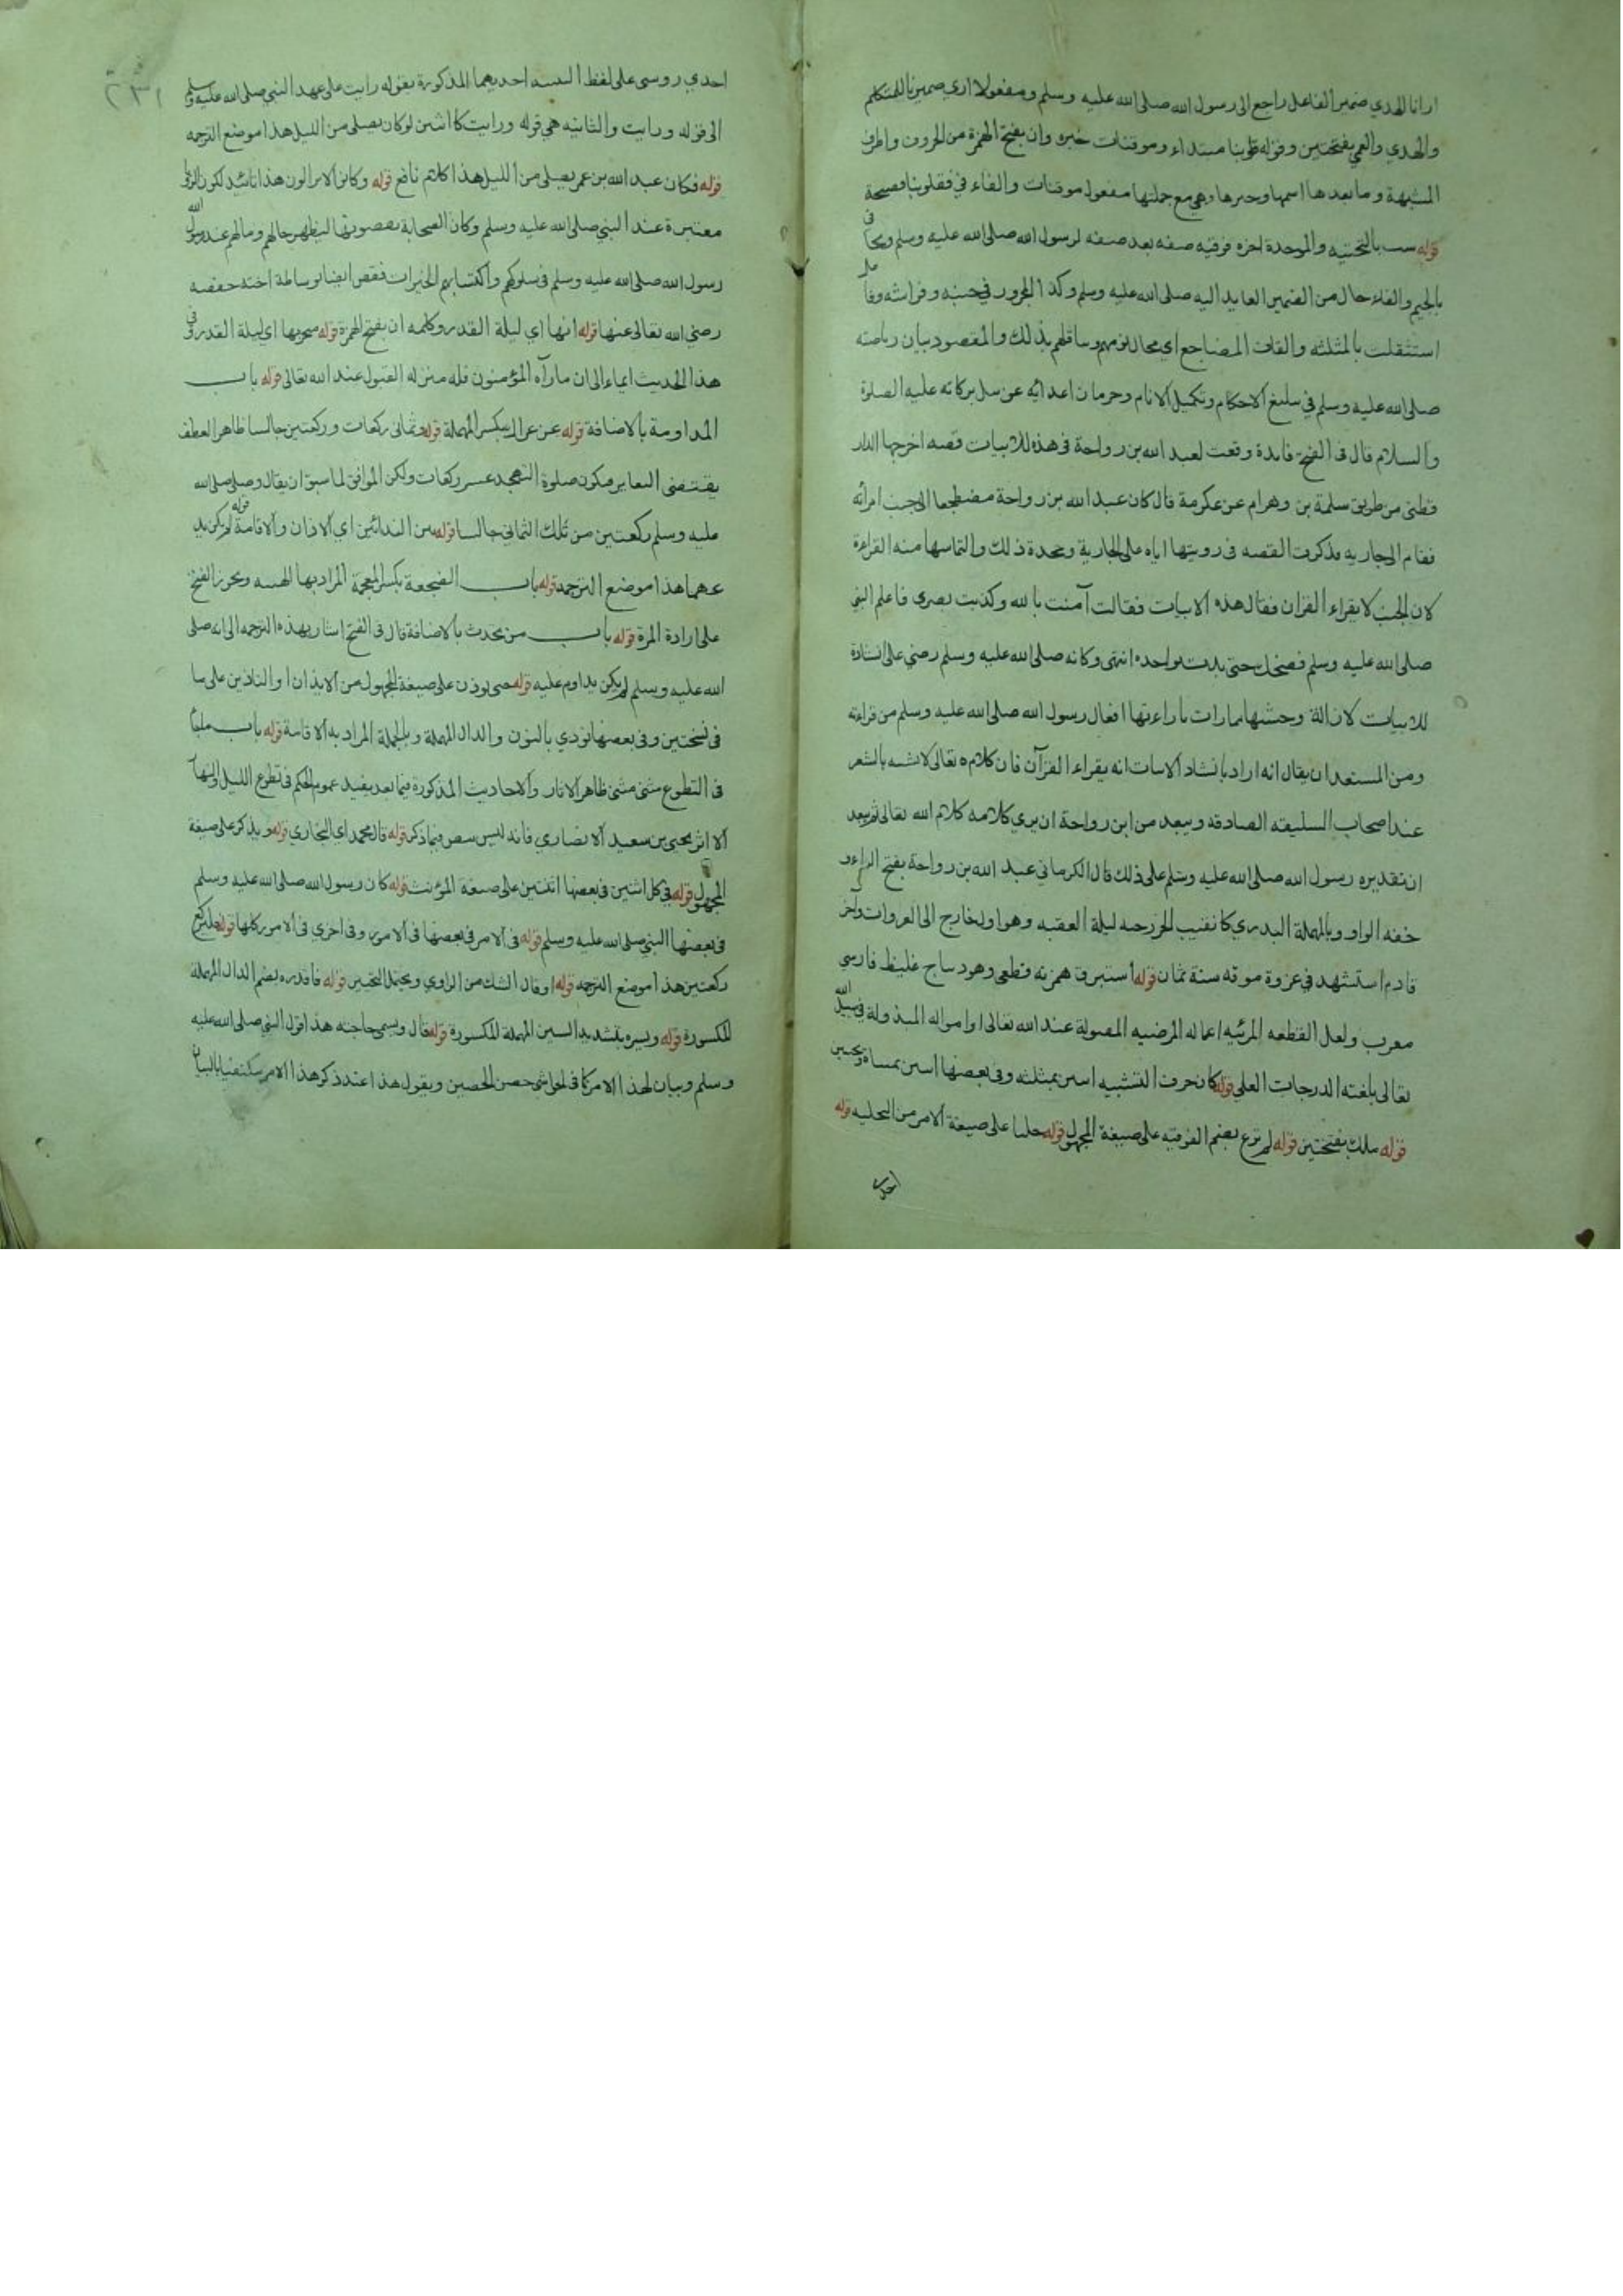 ارانا الهدي ضمير الفاعل راجع الى رسول الله صلى الله عليه وسلم ومفعولا اري ضميرنا للمتكلم
والهدي والعمي بفتحتين وقوله قلوبنا مبتداء وموقنات خبره وان بفتح الهمزة من الحروف
المشبهة وما بعدها اسمها وخبرها وهي مع جملتها مفعول موقنات والفاء في فقلوبنا فصيحة
قوله بالتحتيه والموحدة اخره فوقيه صفه بعد صفه لرسول الله صلى الله عليه وسلم
بالجيم والفاء حال من الضمير العايد اليه صلى الله عليه وسلم وكذا المجرور في جنبه و فراشه
استثقلت بالمثلثه والقاف المضاجع اي محال نومهم بذلك والمقصود بيان
صلى الله عليه وسلم في الاحكام وتكميل الانام وحرمان اعدائه عن بركاته عليه الصلوة
والسلام قال فى الفتح فايدة وقعت لعبد الله بن رواحة فى هذه الابيات قصه اخرجها الدار
قطنى من طريق سلمة بن وهرام عن عكرمة قال كان عبد الله بن رواحة مضطجعا الى جنب امرأته
فقام الى جاريه فذكرت القصه فى رويتها اياه على الجارية وجحدة ذلك والتماسها منه القراءة
لان الجنب لا يقراء القران فقال هذه الابيات فقالت آمنت بالله وكذبت بصرى فاعلم النبي
صلى الله عليه وسلم فضحك حتى بدت نواجده انتهى وكانه صلى الله عليه وسلم رضي على
للابيات لازالة وحشتها افعال رسول الله صلى الله عليه وسلم من قراءته
ومن المستبعد ان يقال انه اراد بانشاد الابيات انه يقراء القرآن فان كلامه تعالى لا بالشعر
عند اصحاب السليقه الصادقه ويبعد من ابن رواحة ان يري كلامه كلام الله تعالى ثم يبعد
ان تقديره رسول الله صلى الله عليه وسلم على ذلك قال الكرماني عبد الله بن رواحة بفتح الراء و
خفه الواو وبالمهملة البدري كان نقيب الخزرجه ليلة العقبه وهو اول خارج الى الغزوات وآخر
قادم استشهد في غزوة موته سنة ثمان قوله استبرق همزته قطعى وهو ديباج غليظ فارسي
معرب ولعل القطعه المرئيه اعماله المرضيه المقبولة عند الله تعالى او امواله المبذولة في سبيل الله
تعالى بلغته الدرجات العلي قوله كان حرف التشبيه اسن بمثلثه وفى بعضها اسن
قوله ملك بفتحتين قوله لم ترع بضم الفوقيه على صيغة المجهول قوله على صيغة الامر من التحليه قوله
احدى
٢٣١
احدي روسى على لفظ احديهما المذكورة بقوله رايت على عهد النبي صلى الله عليه وسلم
الى قوله ورايت والثانيه هي قوله ورايت كان اثنين لو كان يصلى من الليل هذا موضع الترجمه
قوله فكان عبد الله بن عمر يصلى من الليل هذا كلام نافع قوله وكانوا لا يزالون هذا تائيد لكون الرؤيا
معتبرة عند النبي صلى الله عليه وسلم وكان الصحابة يقصونها ليظهر حالهم ومالهم عند رسول الله
رسول الله صلى الله عليه وسلم فى سلوكهم واكتسابهم الخيرات فقص ايضا بوساطة اخته حفصه
رضي الله تعالى عنها قوله انها اي ليلة القدر وكلمه ان بفتح الهمزة قوله اي ليلة القدر و فى
هذا الحديث ايماء الى ان ما رآه المؤمنون فله منزله القبول عند الله تعالى قوله باب
المداومة بالاضافة قوله عن عراك بكسر المهملة قوله وثمانى ركعات وركعتين جالسا ظاهر العطف
يقتضى التغاير فيكون صلوة التهجد عشر ركعات ولكن الموافق لما سبق ان يقال وصلى صلى الله
عليه وسلم ركعتين من تلك الثمانى جالسا قوله بين الندائين اي الاذان والاقامة قوله لم يكن
هذا موضع الترجمه قوله باب الضجعة بكسر المعجمة المراد بها الهيئه ويجوز الفتح
على ارادة المرة قوله باب من تحدث بالاضافة قال فى الفتح اشار بهذه الترجمه الى انه صلى
الله عليه وسلم لم يكن يداوم عليه قوله حتى يوذن على صيغة المجهول من الايذان او التاذين على ما
فى نسختين وفى بعضها نودي بالنون والدال المهملة وبالجملة المراد به الاقامة قوله باب ما جاء
فى التطوع مثنى مثنى ظاهر الاثار والاحاديث المذكورة فيما بعد يفيد عموم الحكم فى تطوع الليل والنهار
الا اثر يحيى بن سعيد الانصاري فانه ليس بنص فيما ذكر قوله قال محمد اي البخاري قوله ويذكر على صيغة
المجهول قوله فى كل اثنين فى بعضها اثنتين على صيغة المؤنث قوله كان رسول الله صلى الله عليه وسلم
فى بعضها النبي صلى الله عليه وسلم قوله فى الامر فى بعضها فى الامور وفى اخري فى الامور كلها قوله فليركع
ركعتين هذا موضع الترجمه قوله او قال الشك من الراوي ويحتمل التخيير قوله فاقدره بضم الدال المهملة
المكسورة قوله ويسره بتشديد السين المهملة المكسورة قوله قال ويسمى حاجته هذا قول النبي صلى الله عليه
وسلم وبيان لهذا الامر كما فى الحواشى حصن الحصين ويقول هذا عند ذكر هذا الامر